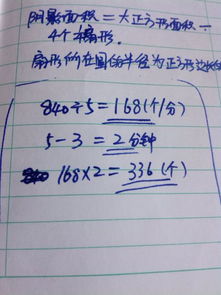 阴影面积=大正方形面积-
4个扇形.
扇形所在圆的半径为正方形边长的
840÷5=168(个/分)
5-3=2分钟
168×2=336(个)